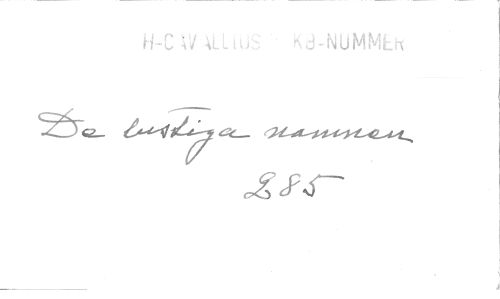 H-CAVALLIUS KB-NUMMER
De lustiga namnen
285